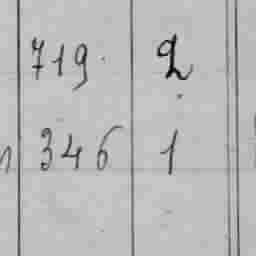 719. 2
346 1